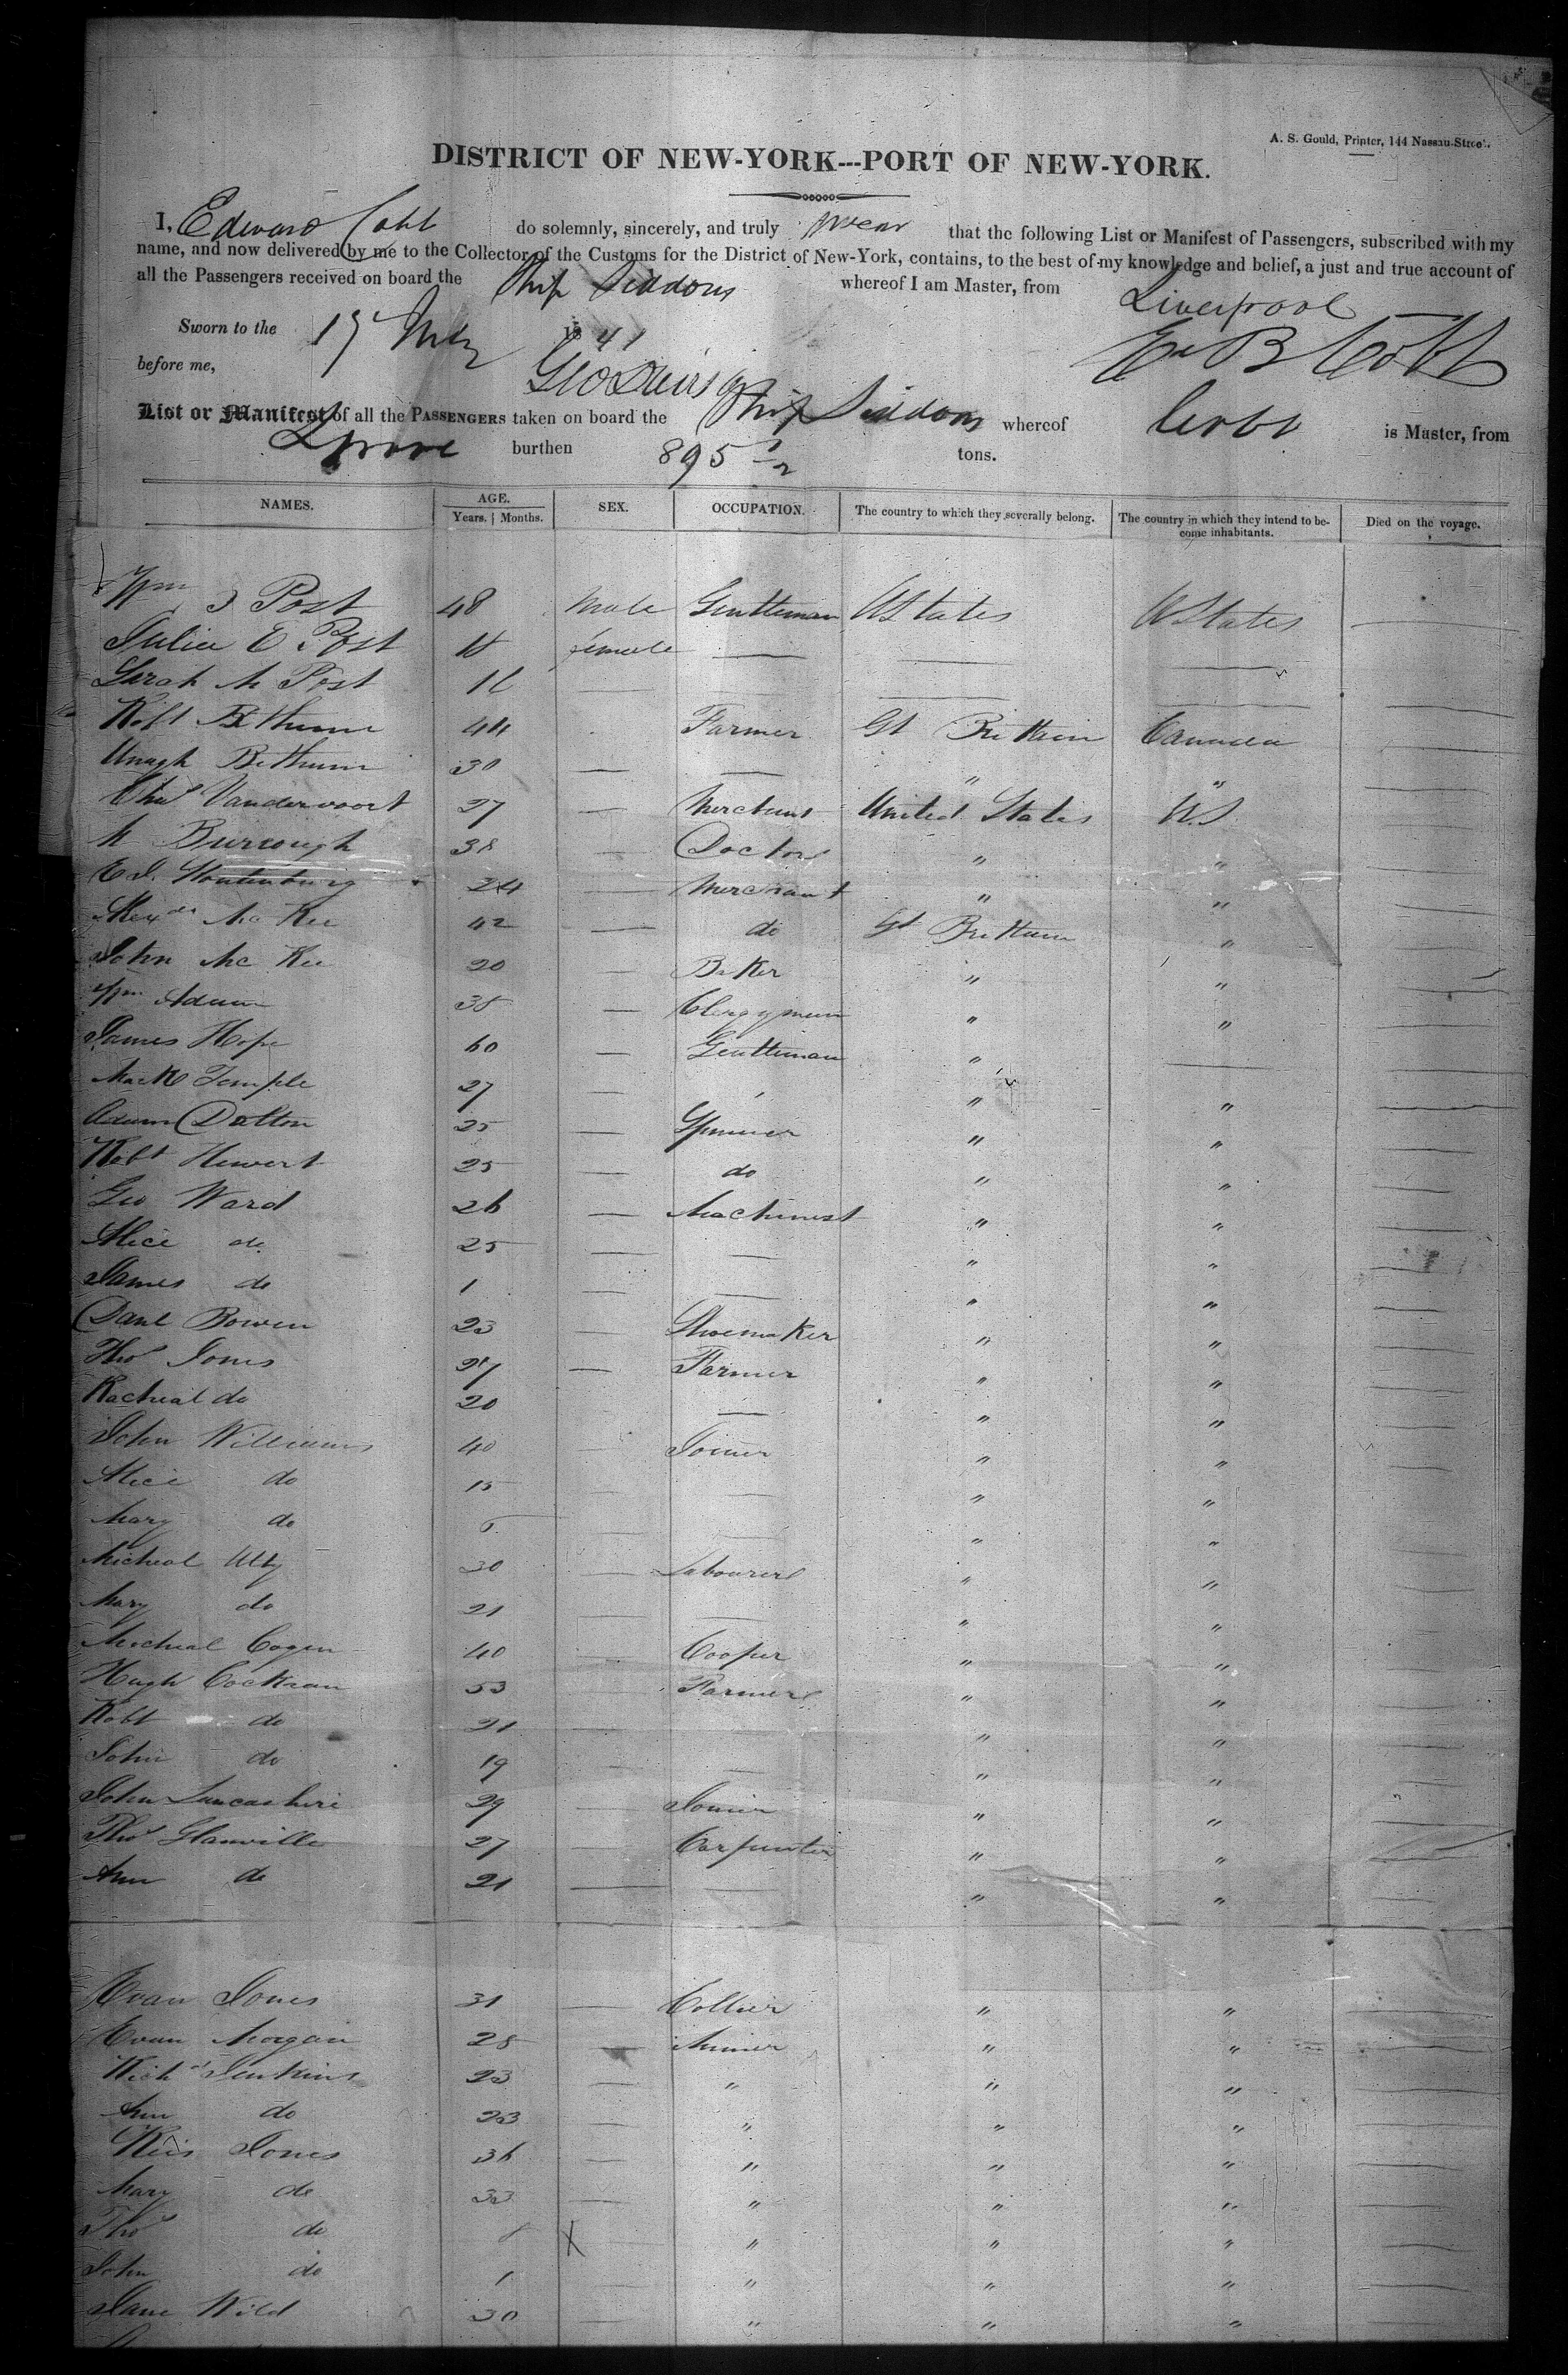 A. S. Gould, Printer, 144 Nassau-Street.
DISTRICT OF NEW-YORK---PORT OF NEW-YORK.
I, Edward Cobb do solemnly, sincerely, and truly swear that the following List or Manifest of Passengers, subscribed with my
name, and now delivered by me to the Collector of the Customs for the District of New-York, contains, to the best of my knowledge and belief, a just and true account of
all the Passengers received on board the Ship Siddons whereof I am Master, from Liverpool
Sworn to the 17 1841
before me, E B Cobb
List or Manifest of all the PASSENGERS taken on board the Ship Siddons whereof Cobb is Master, from
Lpool burthen 895 tons.
NAMES. AGE. SEX. OCCUPATION. The country to which they severally belong. The country in which they intend to be- Died on the voyage.
Years. Months. come inhabitants.
Wm J Post 48 Male Gentleman UStates UStates
Julia E Post 18 female
Sarah M Post 16
Robt Bethune 44 Farmer Gt Brittain Canada
Unagh Bethune 30 " "
Chas Vandervoort 27 Merchant United States US
M Burrough 38 Doctor " "
Ed. Stoutenburg 24 Merchant " "
Alexdr McKee 42 do Gt Brittain "
John McKee 20 Baker " "
Wm Adam 38 Clergyman " "
James Hope 60 Gentleman "
Mark Temple 27 " "
Adam Dalton 25 Spinner " "
Robt Hewert 25 do " "
Geo Ward 26 Machinest " "
Alice do 25 " "
James do 1 " "
Danl Bowen 23 Shoemaker " "
Thos Jones 27 Farmer " "
Racheal do 20 " "
John Williams 40 Joiner " "
Alice do 15 " "
Mary do " "
Micheal 30 Labourer " "
Mary do 21 " "
Micheal Cogen 40 Cooper " "
Hugh Cockran 53 Farmer " "
Robt do 21 " "
John do 19 " "
John Lancashire 29 Joiner " "
Thos Glanville 27 Carpenter " "
Ann do 21 " "
Evan Jones 31 Collier " "
Evan Morgan 28 Miner " "
Richd Jenkins 23 " " "
Ann do 23 " " "
Rees Jones 36 " " "
Mary do 33 " " "
Thos do 8 X " " "
John do 1 " " "
Jane Wild 30 " " "